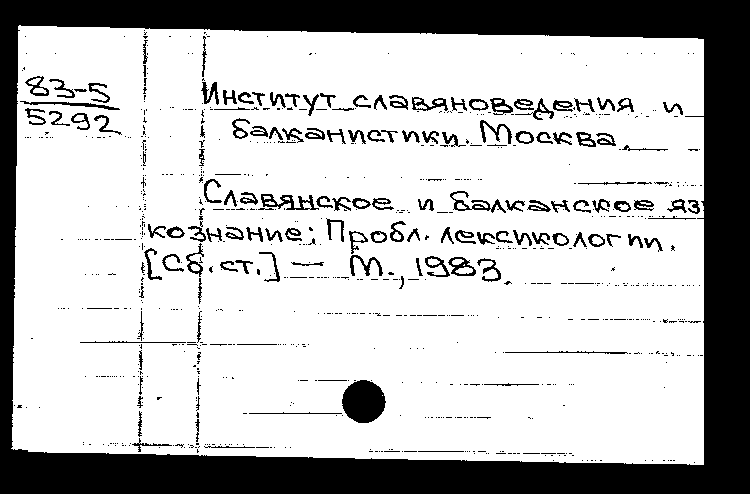 83-5
5292
Институт славяноведения и
балканистики. Москва.
Славянское и балканское яз
кознание; Пробл. лексикологии.
[Сб. ст.] — М., 1983.